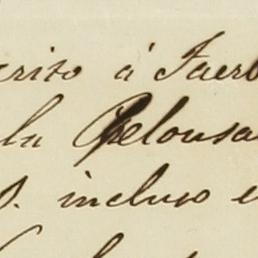 crito á Faer
la Pelousa
S. incluso e